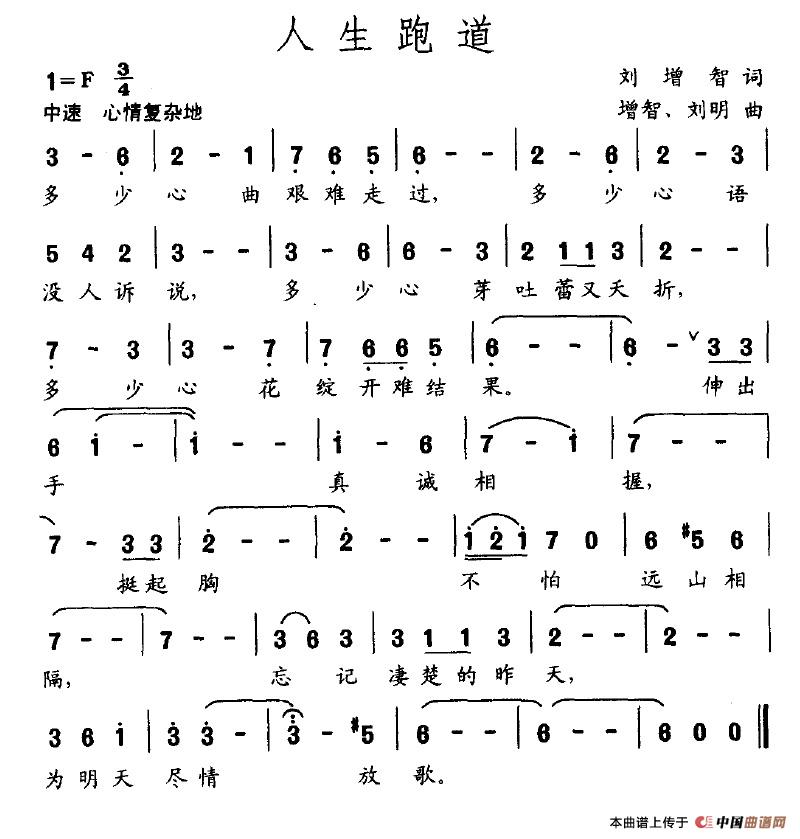 人生跑道
1=F 3/4
刘增智 词
中速 心情复杂地
增智、刘明 曲
3 - 6 | 2 - 1 | 7 6 5 | 6 - - | 2 - 6 | 2 - 3 |
多少心曲艰难走过,多少心语
5 4 2 | 3 - - | 3 - 6 | 6 - 3 | 2 1 1 3 | 2 - - |
没人诉说,多少心芽吐蕾又夭折,
7 - 3 | 3 - 7 | 7 6 6 5 | 6 - - | 6 - 3 3 |
多少心花绽开难结果。伸出
6 1 - | 1 - - | 1 - 6 | 7 - 1 | 7 - - |
手真诚相握,
7 - 3 3 | 2 - - | 2 - - | 1 2 1 7 0 | 6 #5 6 |
挺起胸不怕远山相
7 - - | 7 - - | 3 6 3 | 3 1 1 3 | 2 - - | 2 - - |
隔,忘记凄楚的昨天,
3 6 1 | 3 3 - | 3 - #5 | 6 - - | 6 - - | 6 0 0 ‖
为明天尽情放歌。
本曲谱上传于 中国曲谱网